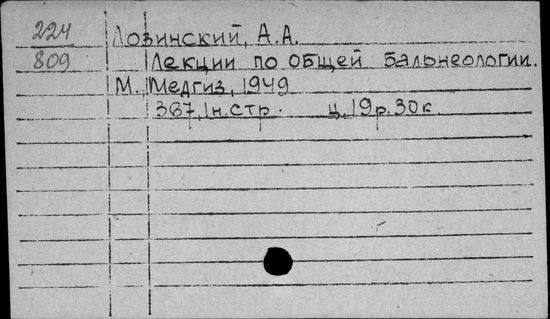 224
Лозинский, А.А.
809
Лекции по общей бальнеологии.
М. Медгиз, 1949
367, 1н.стр. ц. 19р. 30к.